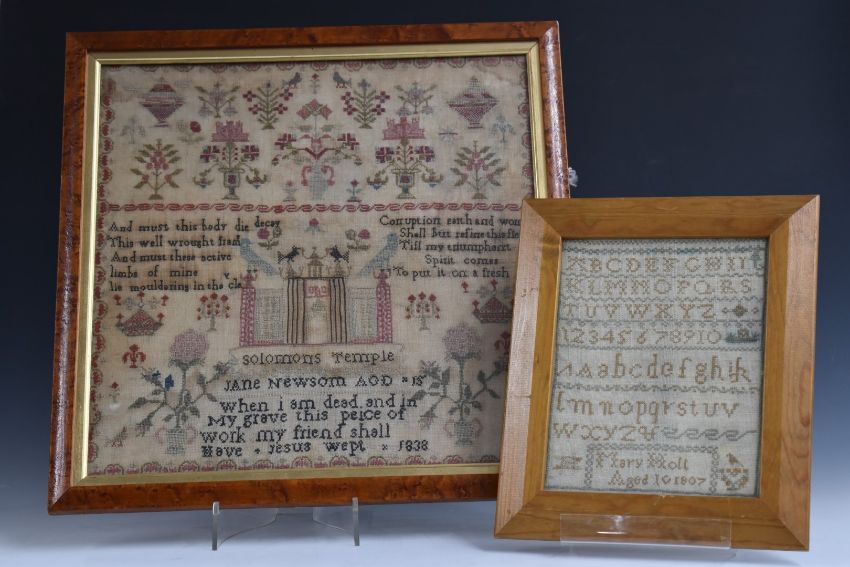 And must this body die decay
This well wrought fram
And must these active
limbs of mine
lie mouldering in the cla y
Corruption earth and wor
Shall But refine this fle
Till my triumphant
Spirit comes
To put it on a fresh
Solomons Temple
JANE Newsom AGD 15
when i am dead and in
My grave this peice of
work my friend shall
Have Jesus wept x 1838
ABCDEFGHIJ
KLMNOPQRS
TUVWXYZ
12345678910
abcdefghijk
lmnopqrstuv
wxyz
Mary Holt
Aged 10 1807